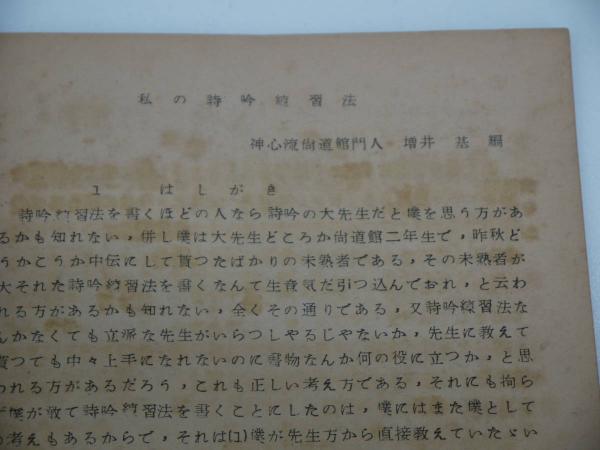 私の詩吟練習法
神心流尚道館門人 増井 基 編
1 はしがき
詩吟練習法を書くほどの人なら詩吟の大先生だと僕を思う方があ
るかも知れない，併し僕は大先生どころか尚道館二年生で，昨秋ど
うかこうか中伝にして貰つたばかりの未熟者である，その未熟者が
大それた詩吟練習法を書くなんて生意気だ引つ込んでおれ，と云わ
れる方があるかも知れない，全くその通りである，又詩吟練習法な
んかなくても立派な先生がいらつしやるじやないか，先生に教えて
貰つても中々上手になれないのに書物なんか何の役に立つか，と思
われる方があるだろう，これも正しい考え方である，それにも拘ら
ず僕が敢て詩吟練習法を書くことにしたのは，僕にはまた僕として
の考えもあるからで，それは(1)僕が先生方から直接教えていたゞい